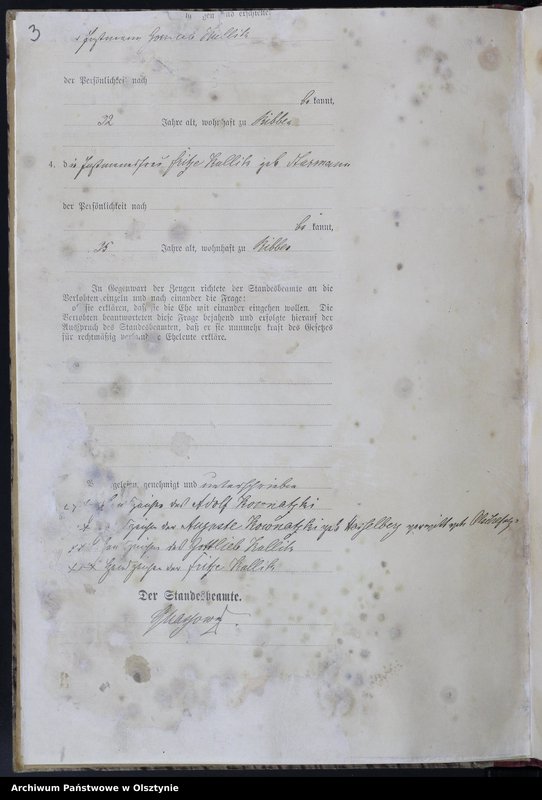 3
der Persönlichkeit nach
be kannt,
32 Jahre alt, wohnhaft zu Ribben
4. die Fritze Kallik geb
der Persönlichkeit nach
be kannt,
35 Jahre alt, wohnhaft zu Ribben
In Gegenwart der Zeugen richtete der Standesbeamte an die
Verlobten einzeln und nach einander die Frage:
ob sie erklären, daß sie die Ehe mit einander eingehen wollen. Die
Verlobten beantworteten diese Frage bejahend und erfolgte hierauf der
Ausspruch des Standesbeamten, daß er sie nunmehr kraft des Gesetzes
für rechtmäßig verbundene Eheleute erkläre.
gelesen, genehmigt und unterschrieben
Handzeichen des Adolf Kownatzki
Handzeichen der Auguste Kownatzki geb Hasselberg
Handzeichen des Gottlieb Kallik
Handzeichen der Fritze Kallik
Der Standesbeamte.
Archiwum Państwowe w Olsztynie